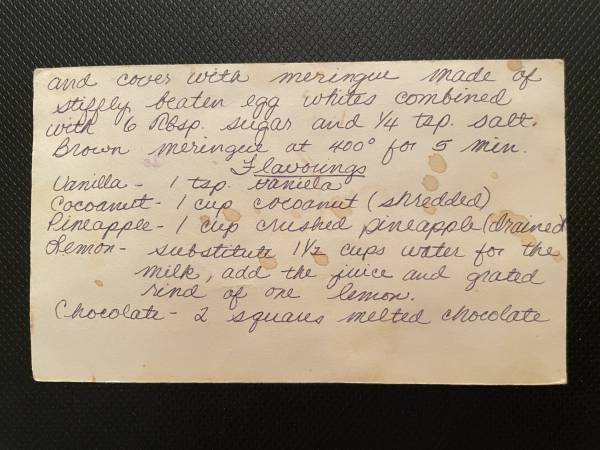 and cover with meringue made of
stiffly beaten egg whites combined
with 6 Tbsp. sugar and 1/4 tsp. salt.
Brown meringue at 400° for 5 min.
Flavorings
Vanilla - 1 tsp. vanilla
Cocoanut - 1 cup cocoanut (shredded)
Pineapple - 1 cup crushed pineapple (drained
Lemon - substitute 1 1/2 cups water for the
milk, add the juice and grated
rind of one lemon.
Chocolate - 2 squares melted chocolate